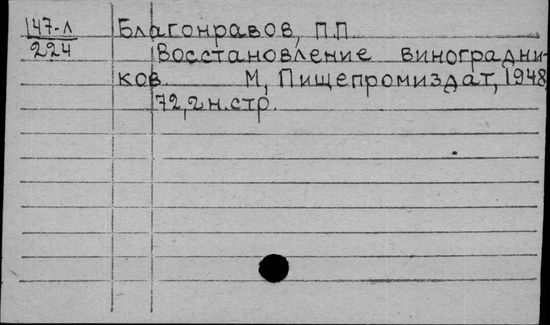 147-Л
224
Благонравов, П.П.
Восстановление виноградни-
ков. М, Пищепромиздат, 1948,
72,2 н.стр.